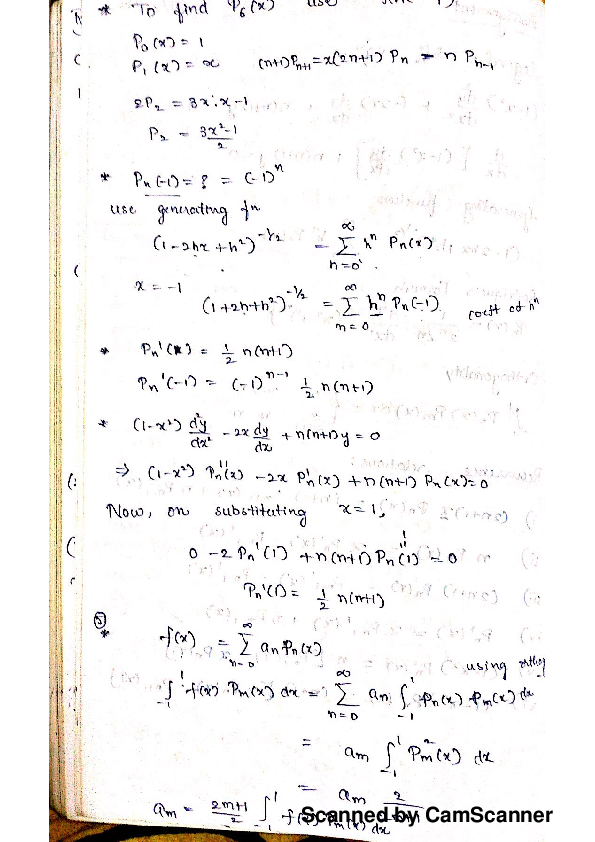 * To find P₆(x) use
P₀(x) = 1
P₁(x) = x   (n+1)Pₙ₊₁ = x(2n+1) Pₙ - n Pₙ₋₁
2P₂ = 3x.x - 1
P₂ = (3x²-1)/2
* Pₙ(-1) = ? = (-1)ⁿ
use generating fn
(1-2hx+h²)^(-1/2) = ∑_{n=0}^{∞} hⁿ Pₙ(x)
x = -1
(1+2h+h²)^(-1/2) = ∑_{n=0}^{∞} hⁿ Pₙ(-1)   coeff of hⁿ
* Pₙ'(1) = 1/2 n(n+1)
Pₙ'(-1) = (-1)ⁿ⁻¹ 1/2 n(n+1)
* (1-x²) d²y/dx² - 2x dy/dx + n(n+1)y = 0
⇒ (1-x²) Pₙ''(x) - 2x Pₙ'(x) + n(n+1) Pₙ(x) = 0
Now, on substituting x = 1,
0 - 2Pₙ'(1) + n(n+1) Pₙ(1) = 0
1
Pₙ'(1) = 1/2 n(n+1)
* f(x) = ∑_{n=0}^{∞} aₙ Pₙ(x)
using orthog
∫_{-1}^{1} f(x) Pₘ(x) dx = ∑_{n=0}^{∞} aₙ ∫_{-1}^{1} Pₙ(x) Pₘ(x) dx
= aₘ ∫_{-1}^{1} Pₘ²(x) dx
= aₘ 2
aₘ = (2m+1)/2 ∫_{-1}^{1} f(x) Pₘ(x) dx
Scanned by CamScanner